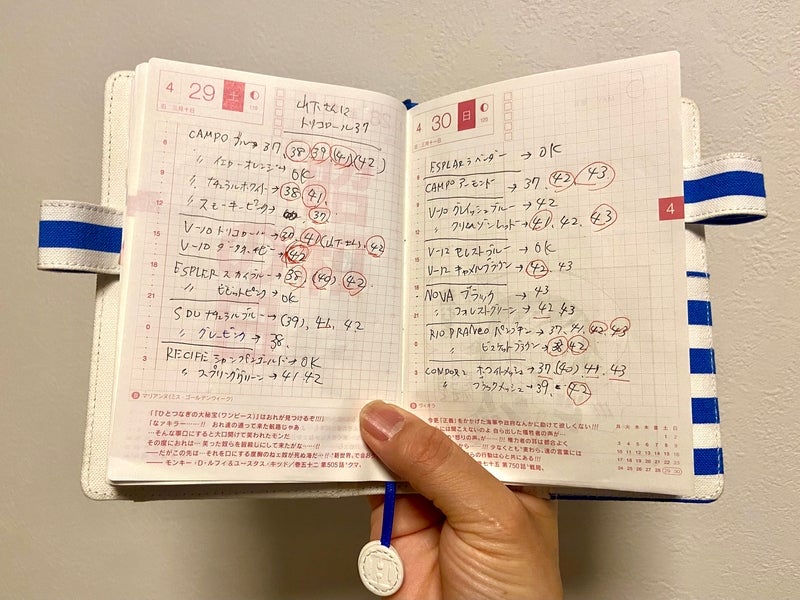 4 29 土
旧 三月十日
119
山下さんに
トリコロール 37
CAMPO ブルー 37, 38 39, 41, 42
〃 イエローオレンジ→OK
〃 ナチュラルホワイト→38 41.
〃 スモーキーピンク→ 37.
V-10 トリコロール→ 37, 41(山下さん), 42
V-10 ダークネイビー→42
ESPLER スカイブルー→38, (40), 42
〃 ビビットピンク→OK
SDU ナチュラルブルー→(39), 41, 42
〃 グレーピンク→38.
RECIFE シャンパンゴールド→OK
〃 スプリンググリーン→41.42
マリアンヌ(ミス・ゴールデンウィーク)
「「ひとつなぎの大秘宝(ワンピース)」はおれが見つけるぞ!!!」
「なァキラー……!! おれ達の通って来た航路じゃあ
…そんな事口にすると大口開けて笑われたモンだ
その度におれは… 笑った奴らを皆殺しにして来たがな……!!
――だがこの先は…それを口にする度胸のねェ奴が死ぬ海だ…!!
――モンキー・D・ルフィ&ユースタス・キッド/巻五十二 第505話"クマ"
4 30 日
旧 三月十一日
120
ESPLAR ラベンダー→OK
CAMPO アーモンド→37, 42, 43
V-10 グレイッシュブルー→42
〃 クリムゾンレッド→41, 42, 43
V-12 セレストブルー→OK
V-12 キャメルブラウン→42. 43
NOVA ブラック→43
〃 フォレストグリーン→42 43
RIO BRANCO パンプキン→37, 41, 42, 43
〃 ビスケットブラウン→38 42
CONDOR2 ホワイトメッシュ→37 (40) 41, 43
〃 ブラックメッシュ→39, 42
4
ヴィオラ
月 火 水 木 金 土 日
1 2
3 4 5 6 7 8 9
10 11 12 13 14 15 16
17 18 19 20 21 22 23
24 25 26 27 28 29 30